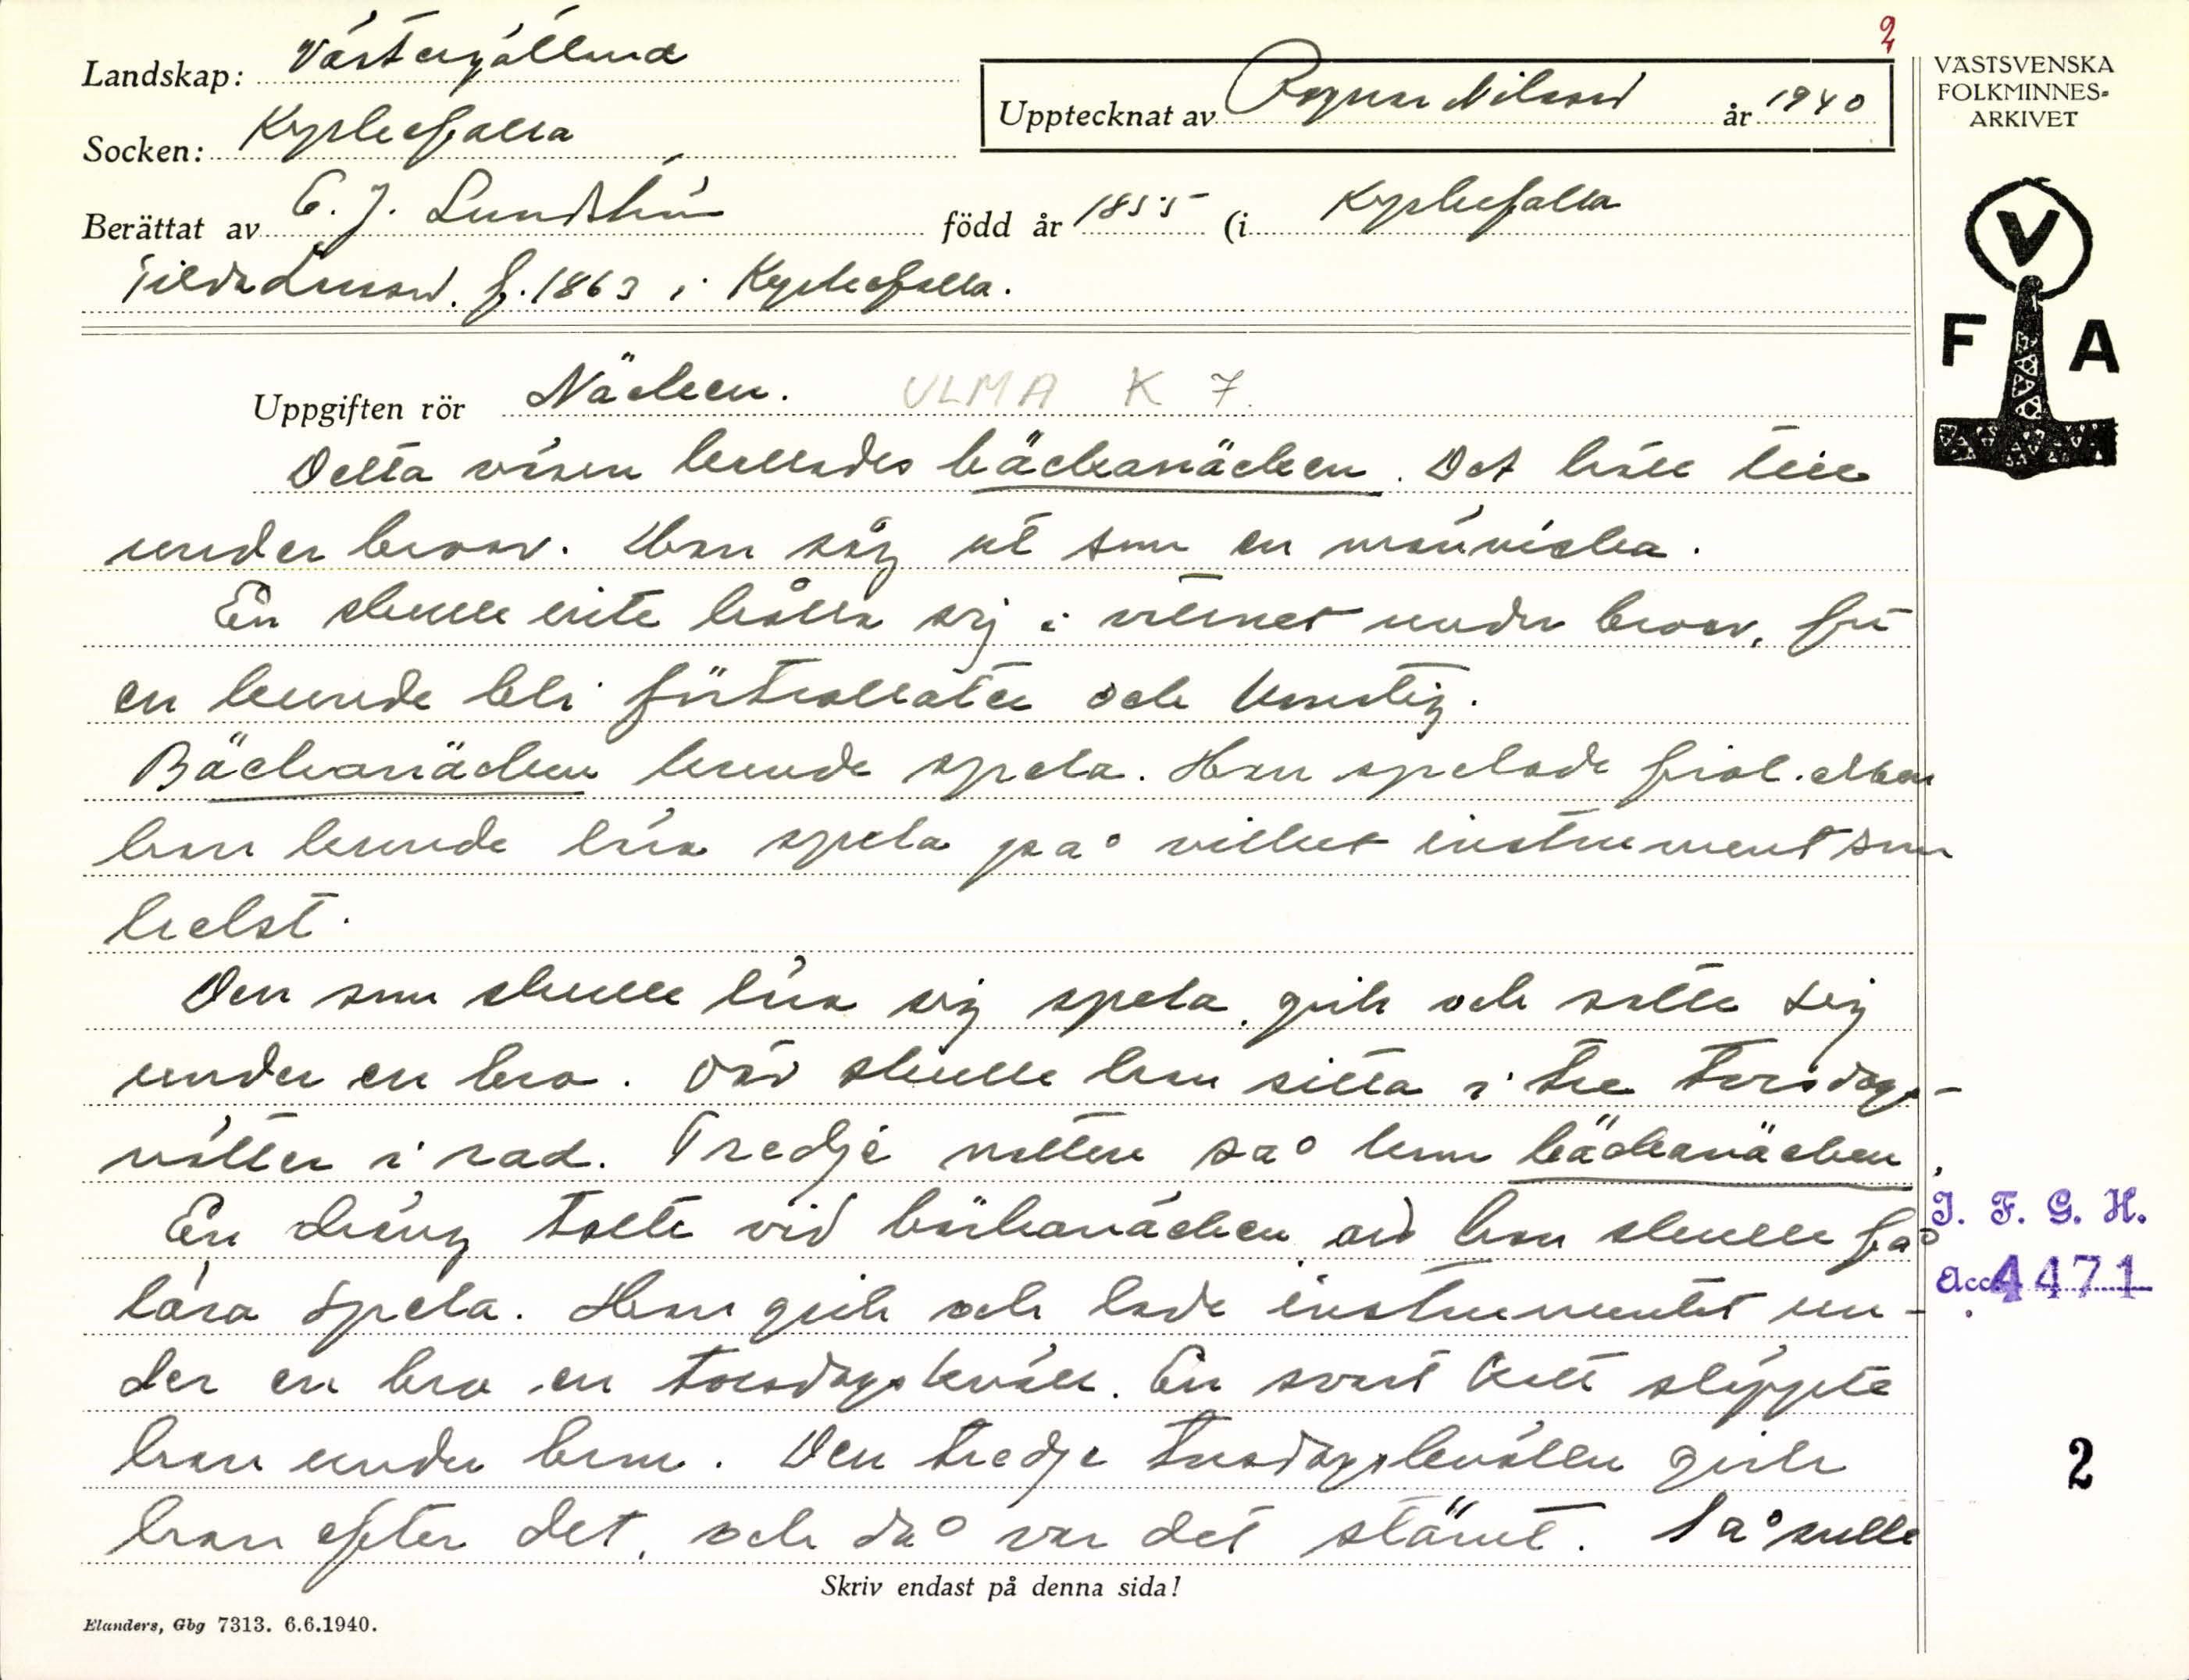 2
Landskap: Västergötland
Upptecknat av Ragnar Nilsson år 1940
VÄSTSVENSKA
FOLKMINNES-
ARKIVET
Socken: Kyrkefalla
Berättat av E. J. Lundblin född år 1855 (i Kyrkefalla
Tilda Larsson. f. 1863 i Kyrkefalla.
V
F A
Uppgiften rör Näcken. VLMA K 7.
Detta väsen kallades bäckanäcken. Det höll till
under broar. Han såg ut som en människa.
En skulle inte hålla sig i vattnet under broar, för
en kunde bli förtrollater och konstig.
Bäckanäcken kunde spela. Han spelade fiol. Men
han kunde lära spela på vilket instrument som
helst.
Den som skulle lära sig spela, gick och satte sig
under en bro. Där skulle han sitta i tre torsdags-
nätter i rad. Tredje natten sa han bäckanäcken.
En dräng talte vid bäckanäcken, att han skulle få
lära spela. Han gick och lade instrumentet un-
der en bro en torsdagskväll. En svart katt släppte
han under bron. Den tredje torsdagskvällen gick
han efter det, och då var det stämt. Så sulle
I. F. G. H.
Acc 4471
2
Skriv endast på denna sida!
Elanders, Gbg 7313. 6.6.1940.